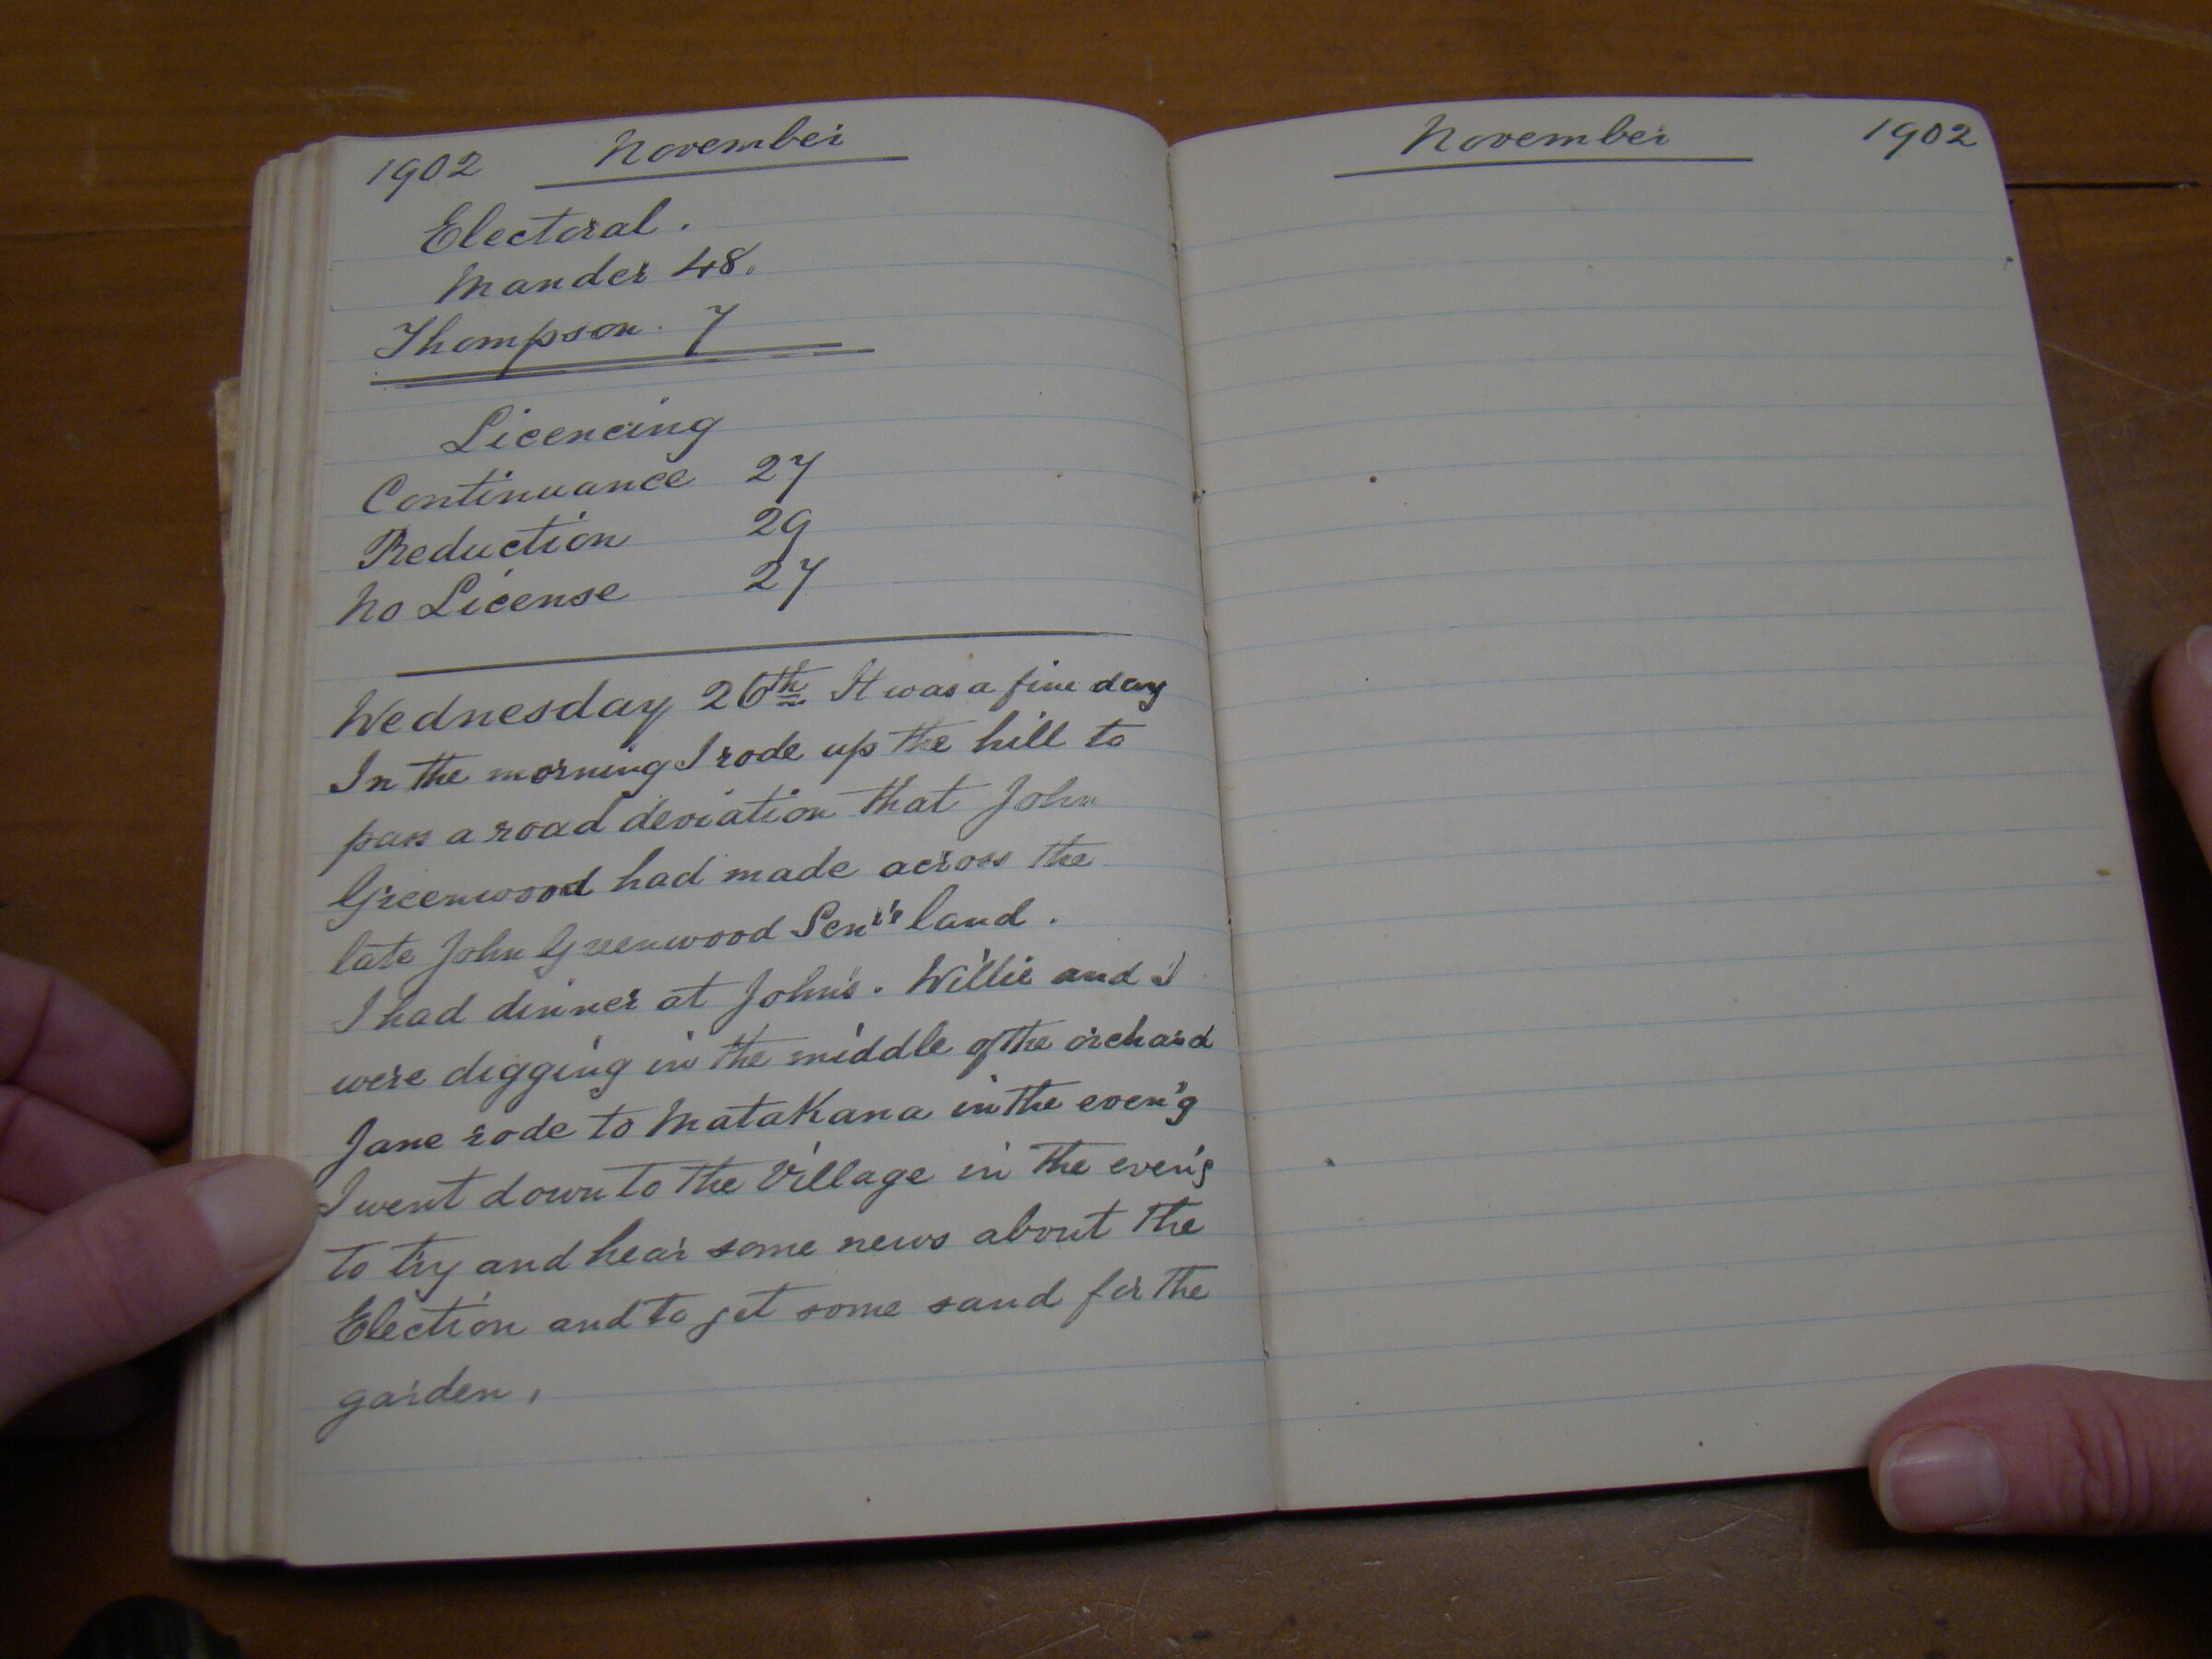 1902 November
Electoral.
Mander 48.
Thompson. 7
Licencing
Continuance 27
Reduction 29
No License 27
Wednesday 26th It was a fine day
In the morning I rode up the hill to
pass a road deviation that John
Greenwood had made across the
late John Greenwood Senr's land.
I had dinner at John's. Willie and I
were digging in the middle of the orchard
Jane rode to Matakana in the even'g
I went down to the Village in the even'g
to try and hear some news about the
Election and to get some sand for the
garden,
November 1902